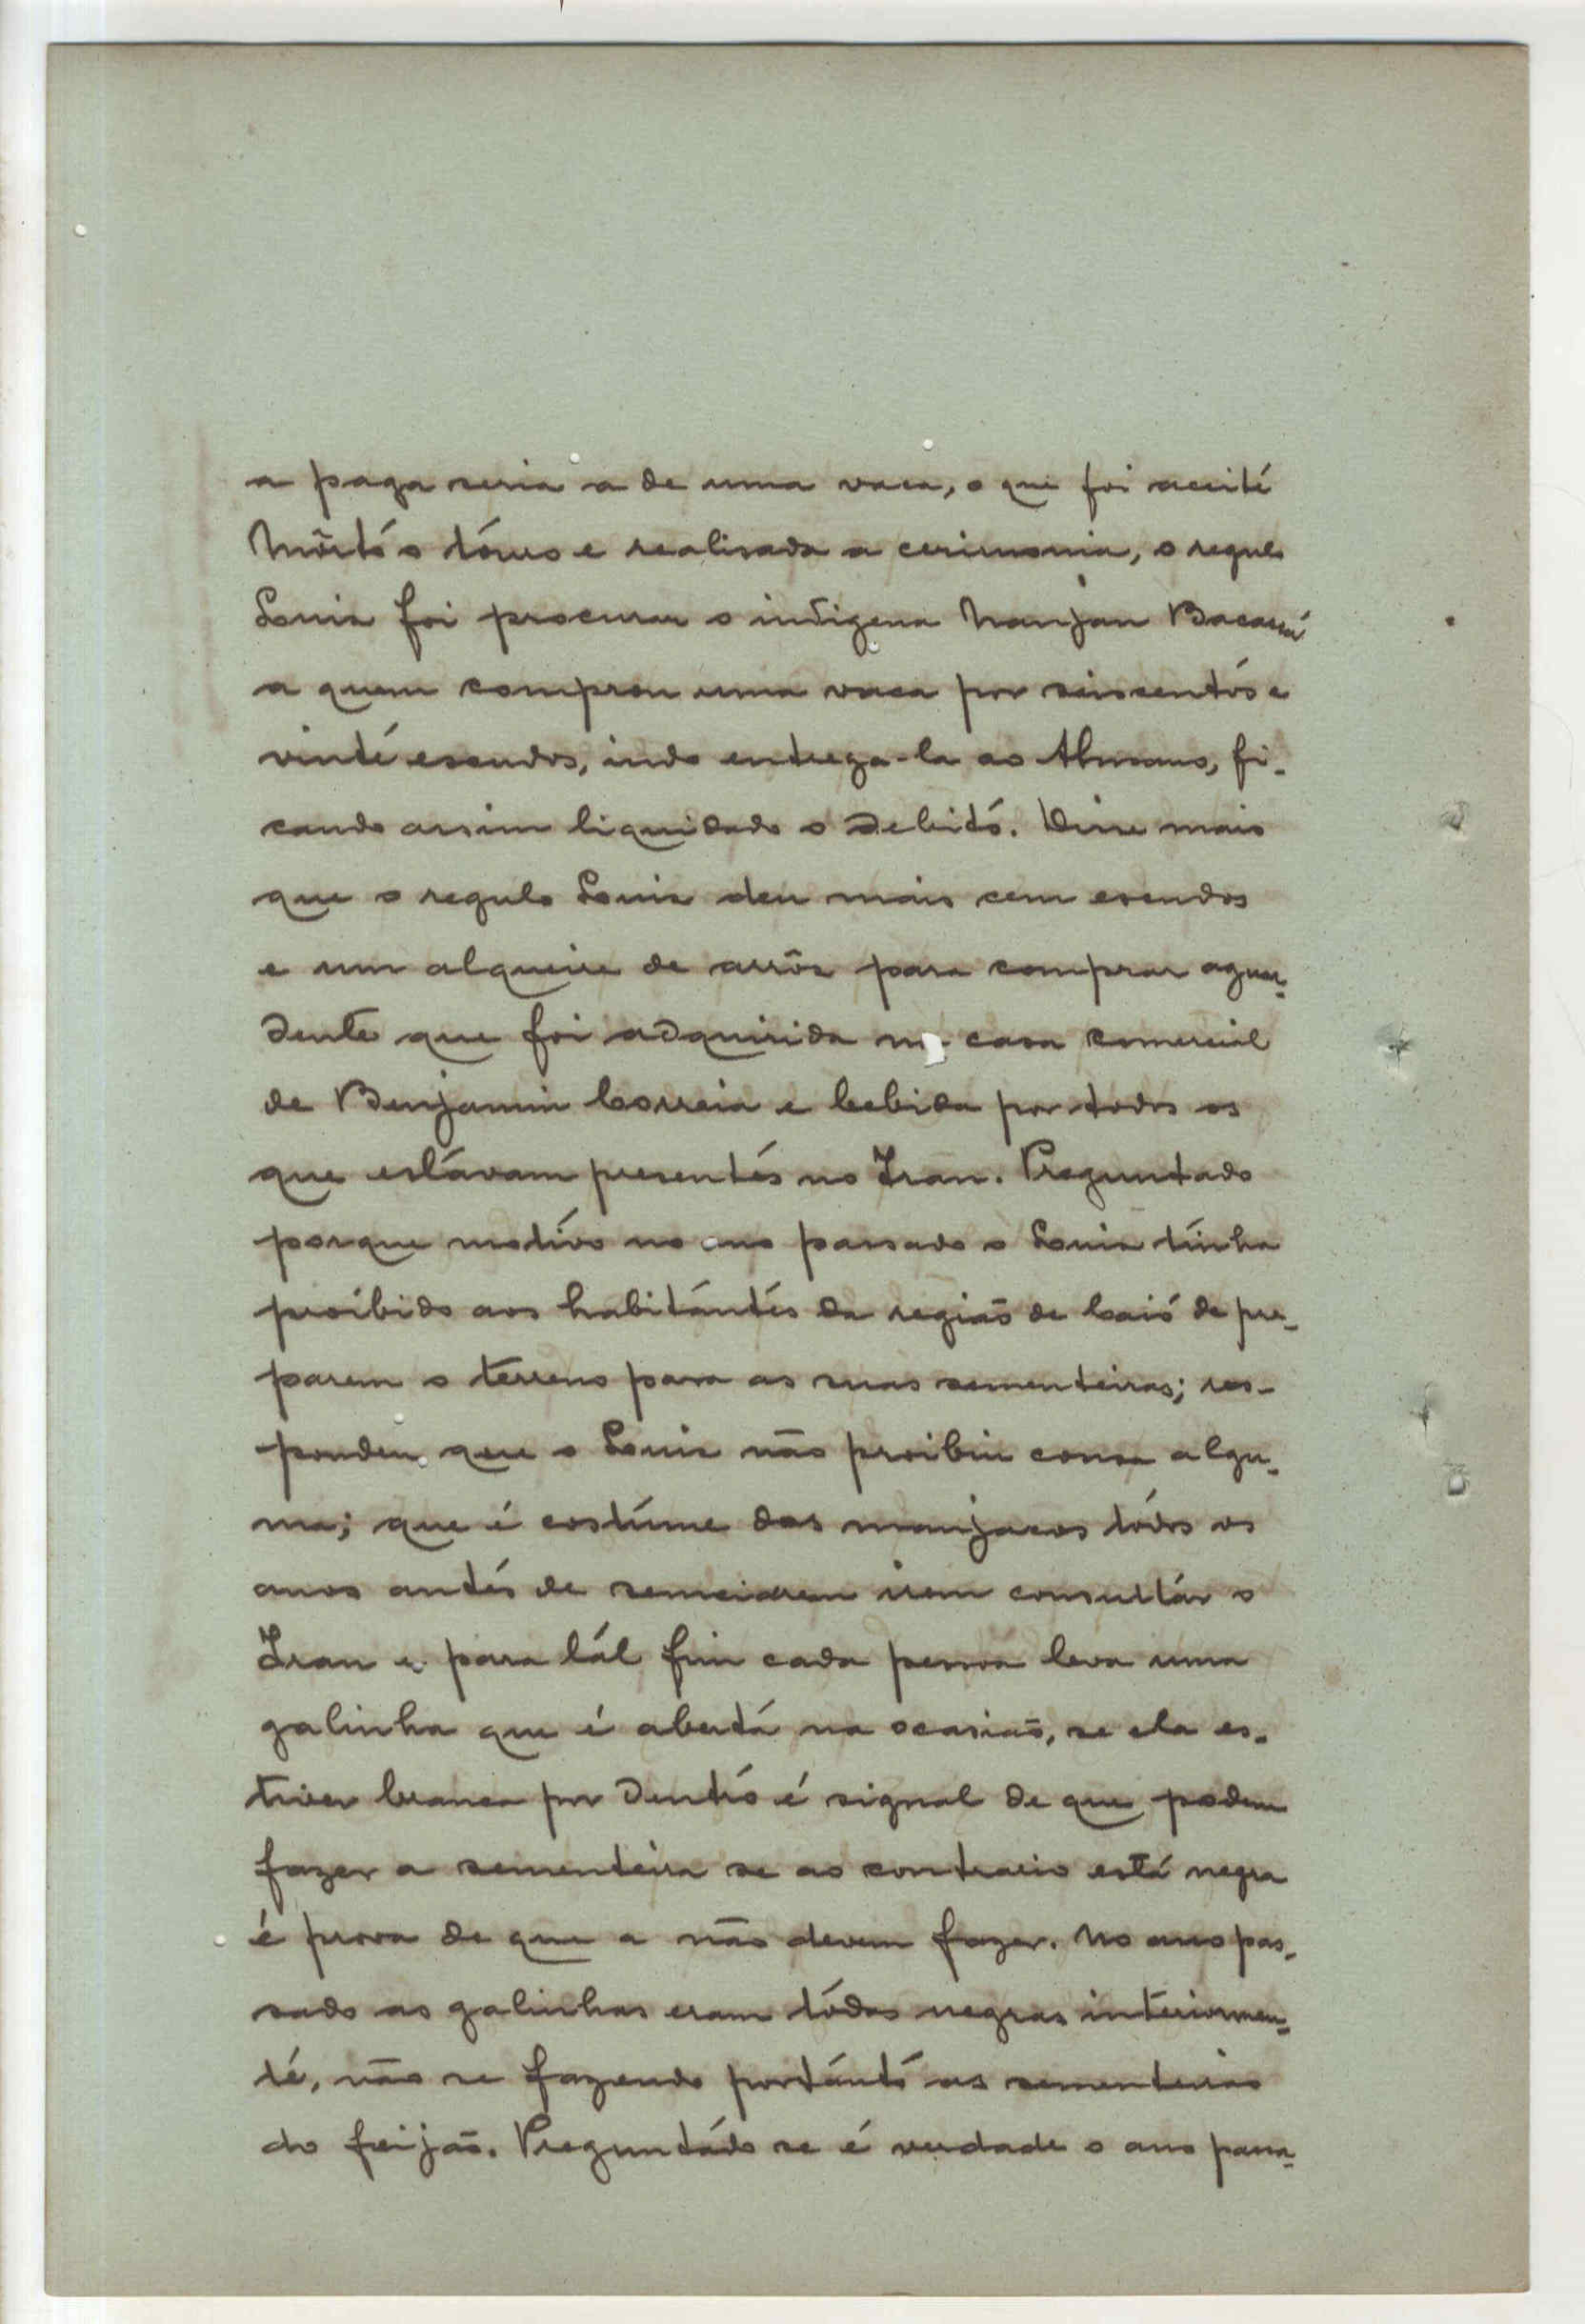 a paga seria a de uma vaca, o que foi aceite
Morto o touro e realisada a cerimonia, o regulo
Louis foi procurar o indigena Nanjan Bacassá
a quem comprou uma vaca por seiscentos e
vinte escudos, indo entrega-la ao Amoans, fi-
cando assim liquidado o debito. Disse mais
que o regulo Louis deu mais cem escudos
e um alqueire de arrôz para comprar aguar-
dente que foi adquirida na casa comercial
de Benjamin Correia e bebida por todos os
que estávam presentes no Iran. Preguntado
porque motivo no ano passado o Louis tinha
proíbido aos habitantes da região de Caió de pre-
parem o terreno para as suas sementeiras; res-
pondeu que o Louis não proibiu cousa algu-
ma; que é costume dos manjacos tódos os
anos antes de semeiarem irem consultar o
Iran e para tál fim cada pessoa leva uma
galinha que é aberta na ocasião, se ela es-
tiver branca por dentro é signal de que podem
fazer a sementeira se ao contrario está negra
é prova de que a não devem fazer. No ano pas-
sado as galinhas eram tódas negras interiormen-
te, não se fazendo portanto as sementeiras
do feijão. Preguntádo se é verdade o ano passa-